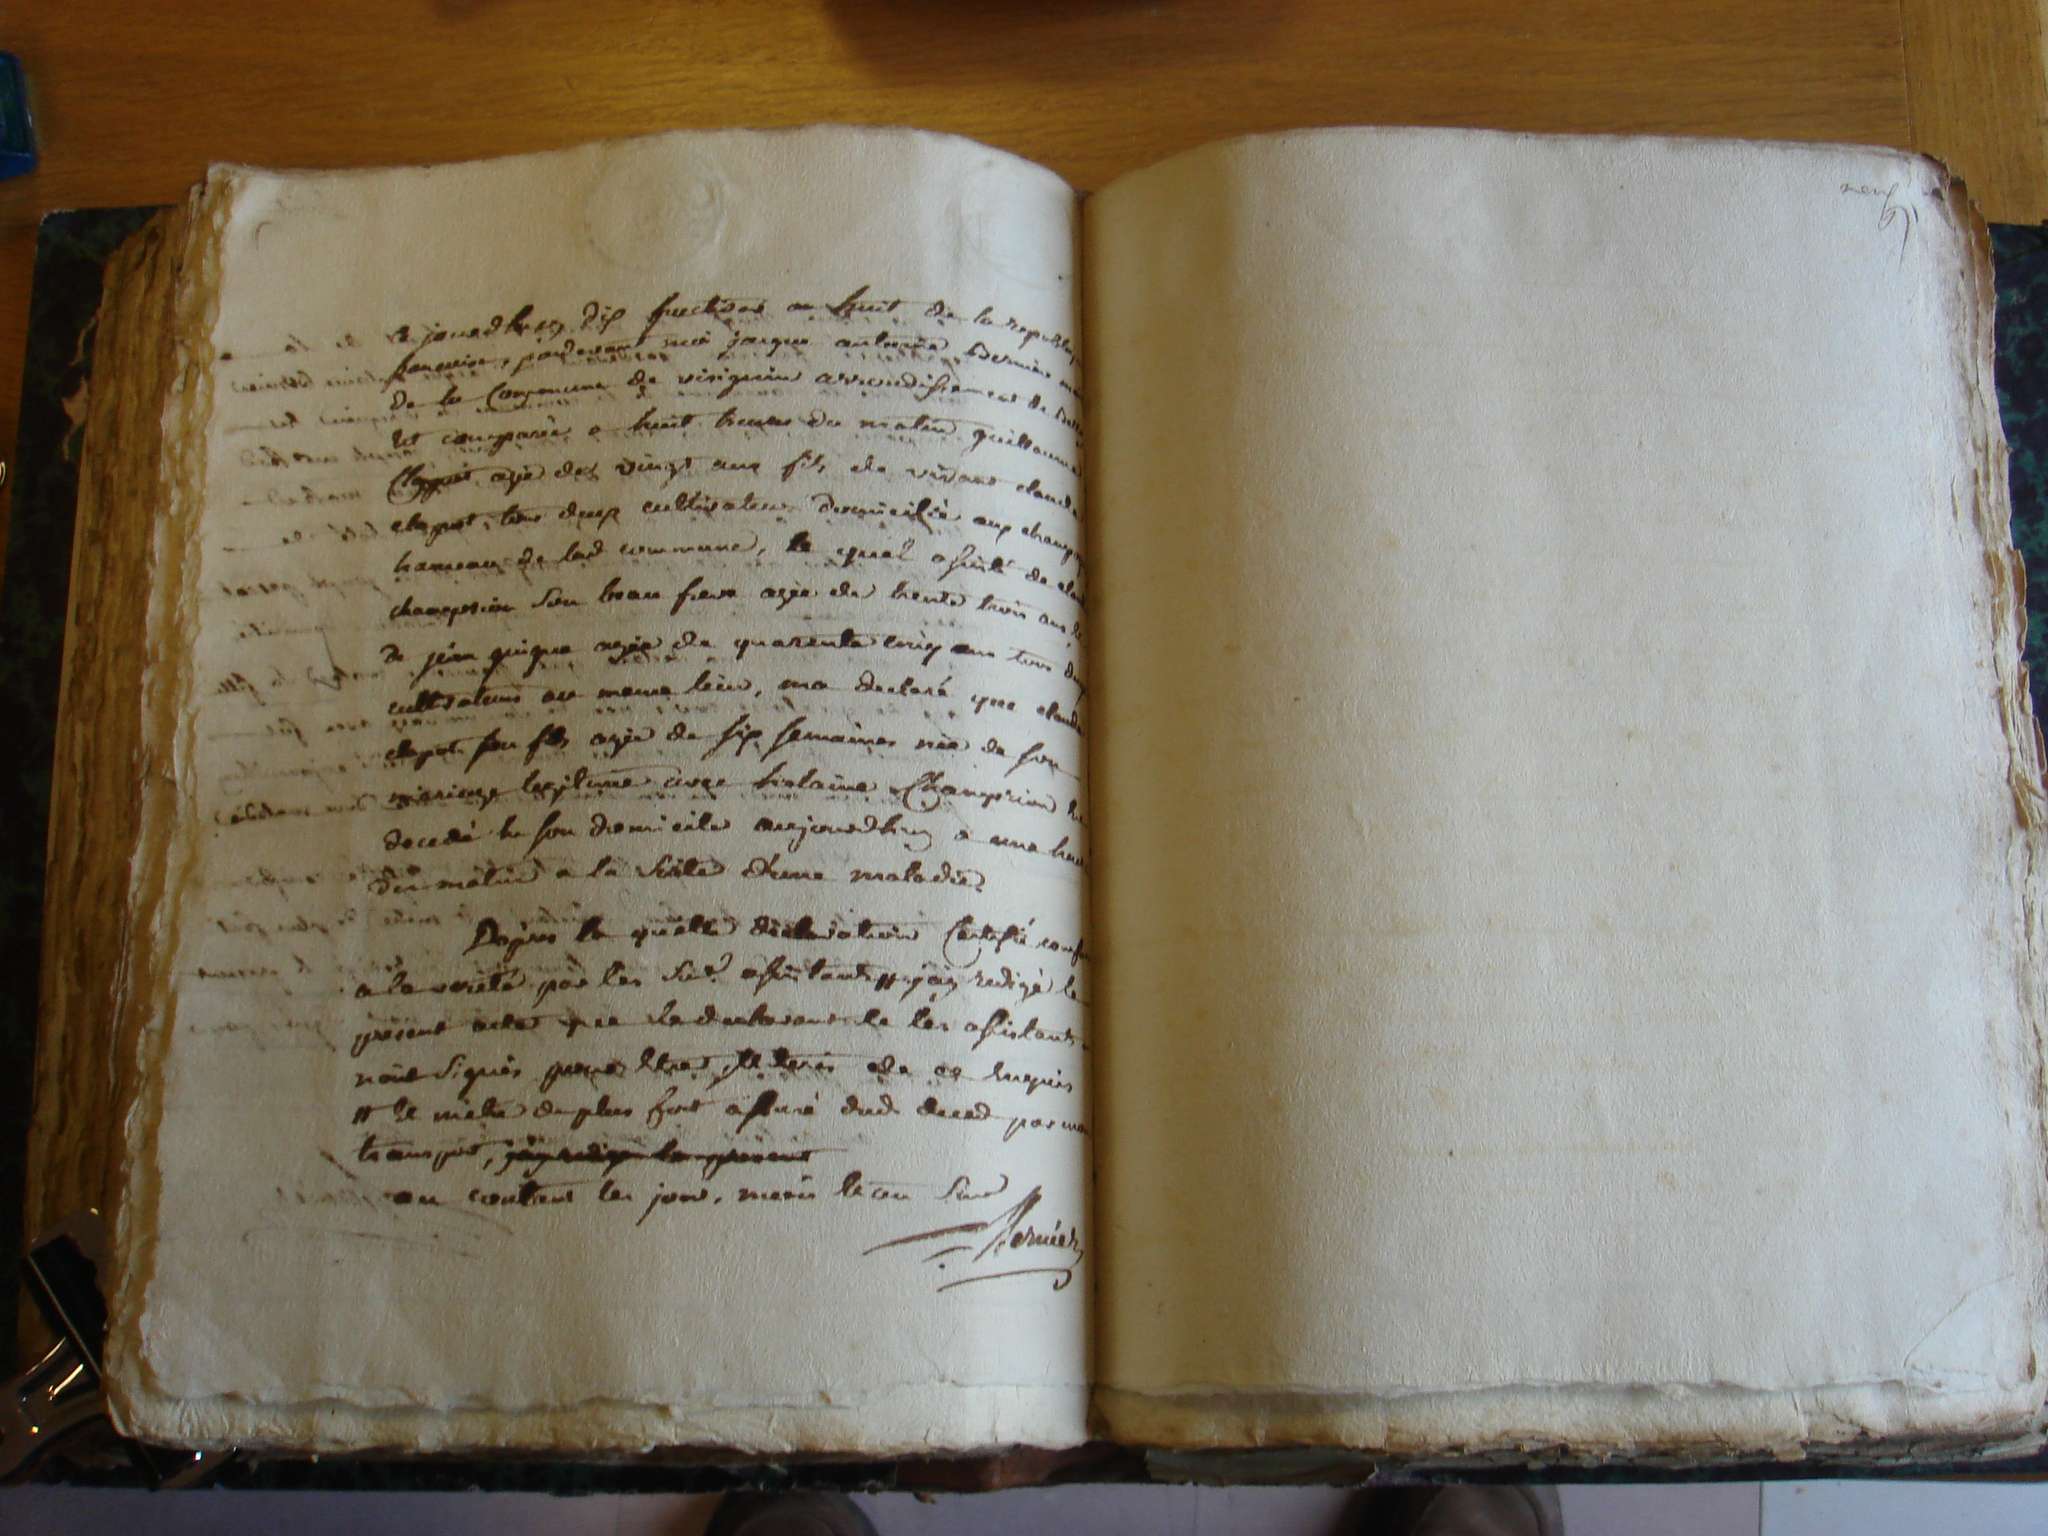 ce jourdhuy dix fructidor an huit de la republique
francaise, pardevant moi jacque antoine Bernier
de la Commune de arrondissement de
Est comparu a huit heures du matin guillaume
Clapot agé de vingt ans fils de vivant claude
clapot, tous deux cultivateur domicilié aux
hameau de lad commune, le quel assisté de
champrion son beau frere agée de trente trois ans
de jean agée de quarente cinq ans tous deux
cultivateurs au meme lieu, ma declaré que claude
clapot son fils agée de six semaines née de son
mariage legitime avec Champrion
decedé en son domicile aujourdhuy a une heure
du matin a la suite d'une maladie
Dapres la quelle declaration Certifié
a la verité par les sud. assistants # jai redigé le
present acte que le declarant et les assistants
nont signés pour etre illiteris de ce enquis
# et metre de plus fort assuré dud. deced par mon
transport, jai redigé le present
au contens les jour, mois et an sud
Bernier
neuf